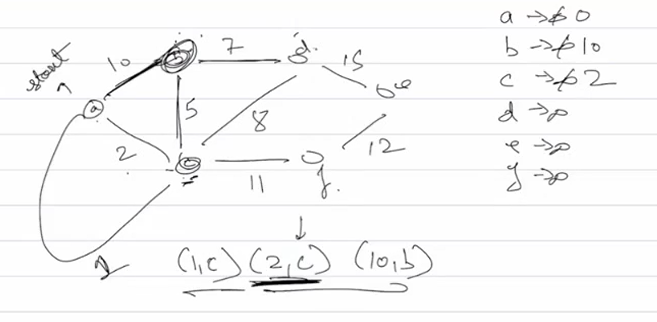 start
a
10
b
7
d
15
e
5
8
2
c
11
f
12
1
(1,c) (2,c) (10,b)
a → 0
b → 10
c → 2
d → ∞
e → ∞
f → ∞